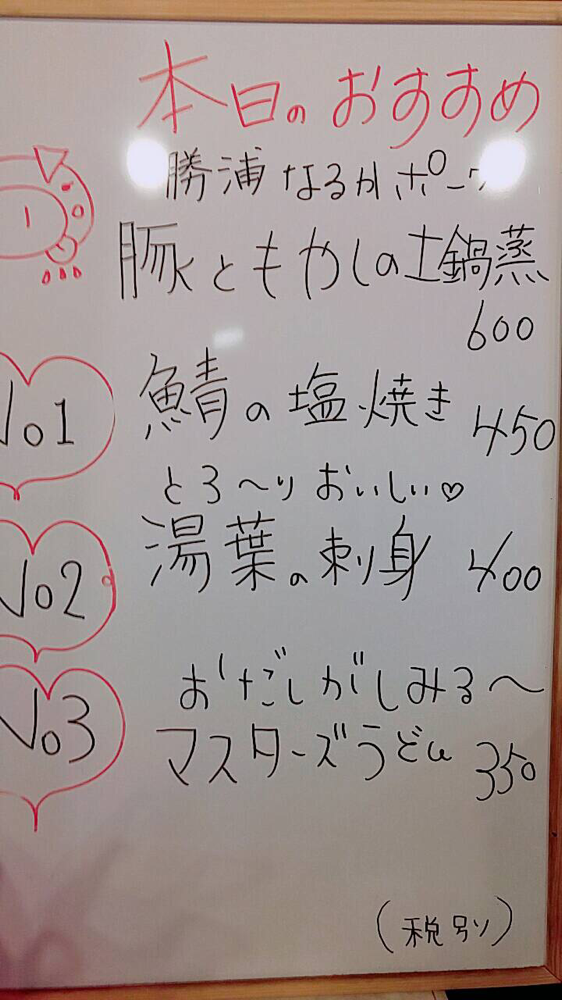 本日のおすすめ
勝浦なるかポーク
1
豚ともやしの土鍋蒸
600
No1
鯖の塩焼き 450
とろ～りおいしい♡
No2
湯葉の刺身 400
おだしがしみる～
No3
マスターズうどん 350
(税別)